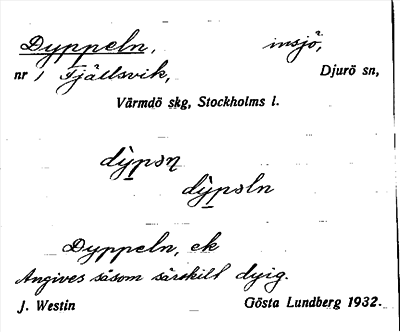 Dyppeln, insjö,
nr 1 Fjällsvik, Djurö sn,
Värmdö skg, Stockholms l.
dỳpəη
dỳpəln
Dyppeln, ek
Angives såsom särskilt dyig.
J. Westin Gösta Lundberg 1932.